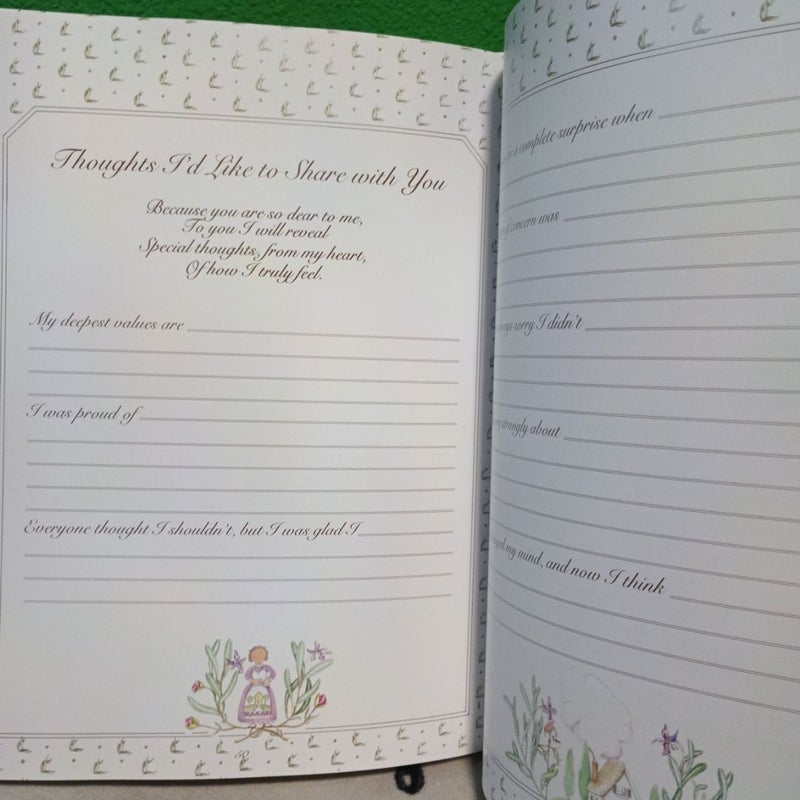 Thoughts I'd Like to Share with You
Because you are so dear to me,
To you I will reveal
Special thoughts, from my heart,
Of how I truly feel.
My deepest values are
I was proud of
Everyone thought I shouldn't, but I was glad I
50
a complete surprise when
of concern was
worry I didn't
strongly about
my mind, and now I think